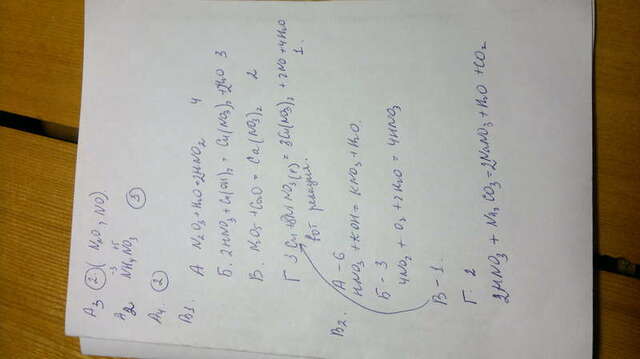 A3 ② (N₂O, NO)
A2 NH₄NO₃ ③
-3 +5
A4. ②
B1. A N₂O₃ + H₂O = 2HNO₂ 4
Б. 2HNO₃ + Cu(OH)₂ = Cu(NO₃)₂ + 2H₂O 3
В. N₂O₅ + CaO = Ca(NO₃)₂ 2
Г 3Cu + 8HNO₃(р) = 3Cu(NO₃)₂ + 2NO + 4H₂O 1.
вот реакция.
B2. A - 6
HNO₃ + KOH = KNO₃ + H₂O.
Б - 3
4NO₂ + O₂ + 2H₂O = 4HNO₃
В - 1.
Г. 2
2HNO₃ + Na₂CO₃ = 2NaNO₃ + H₂O + CO₂